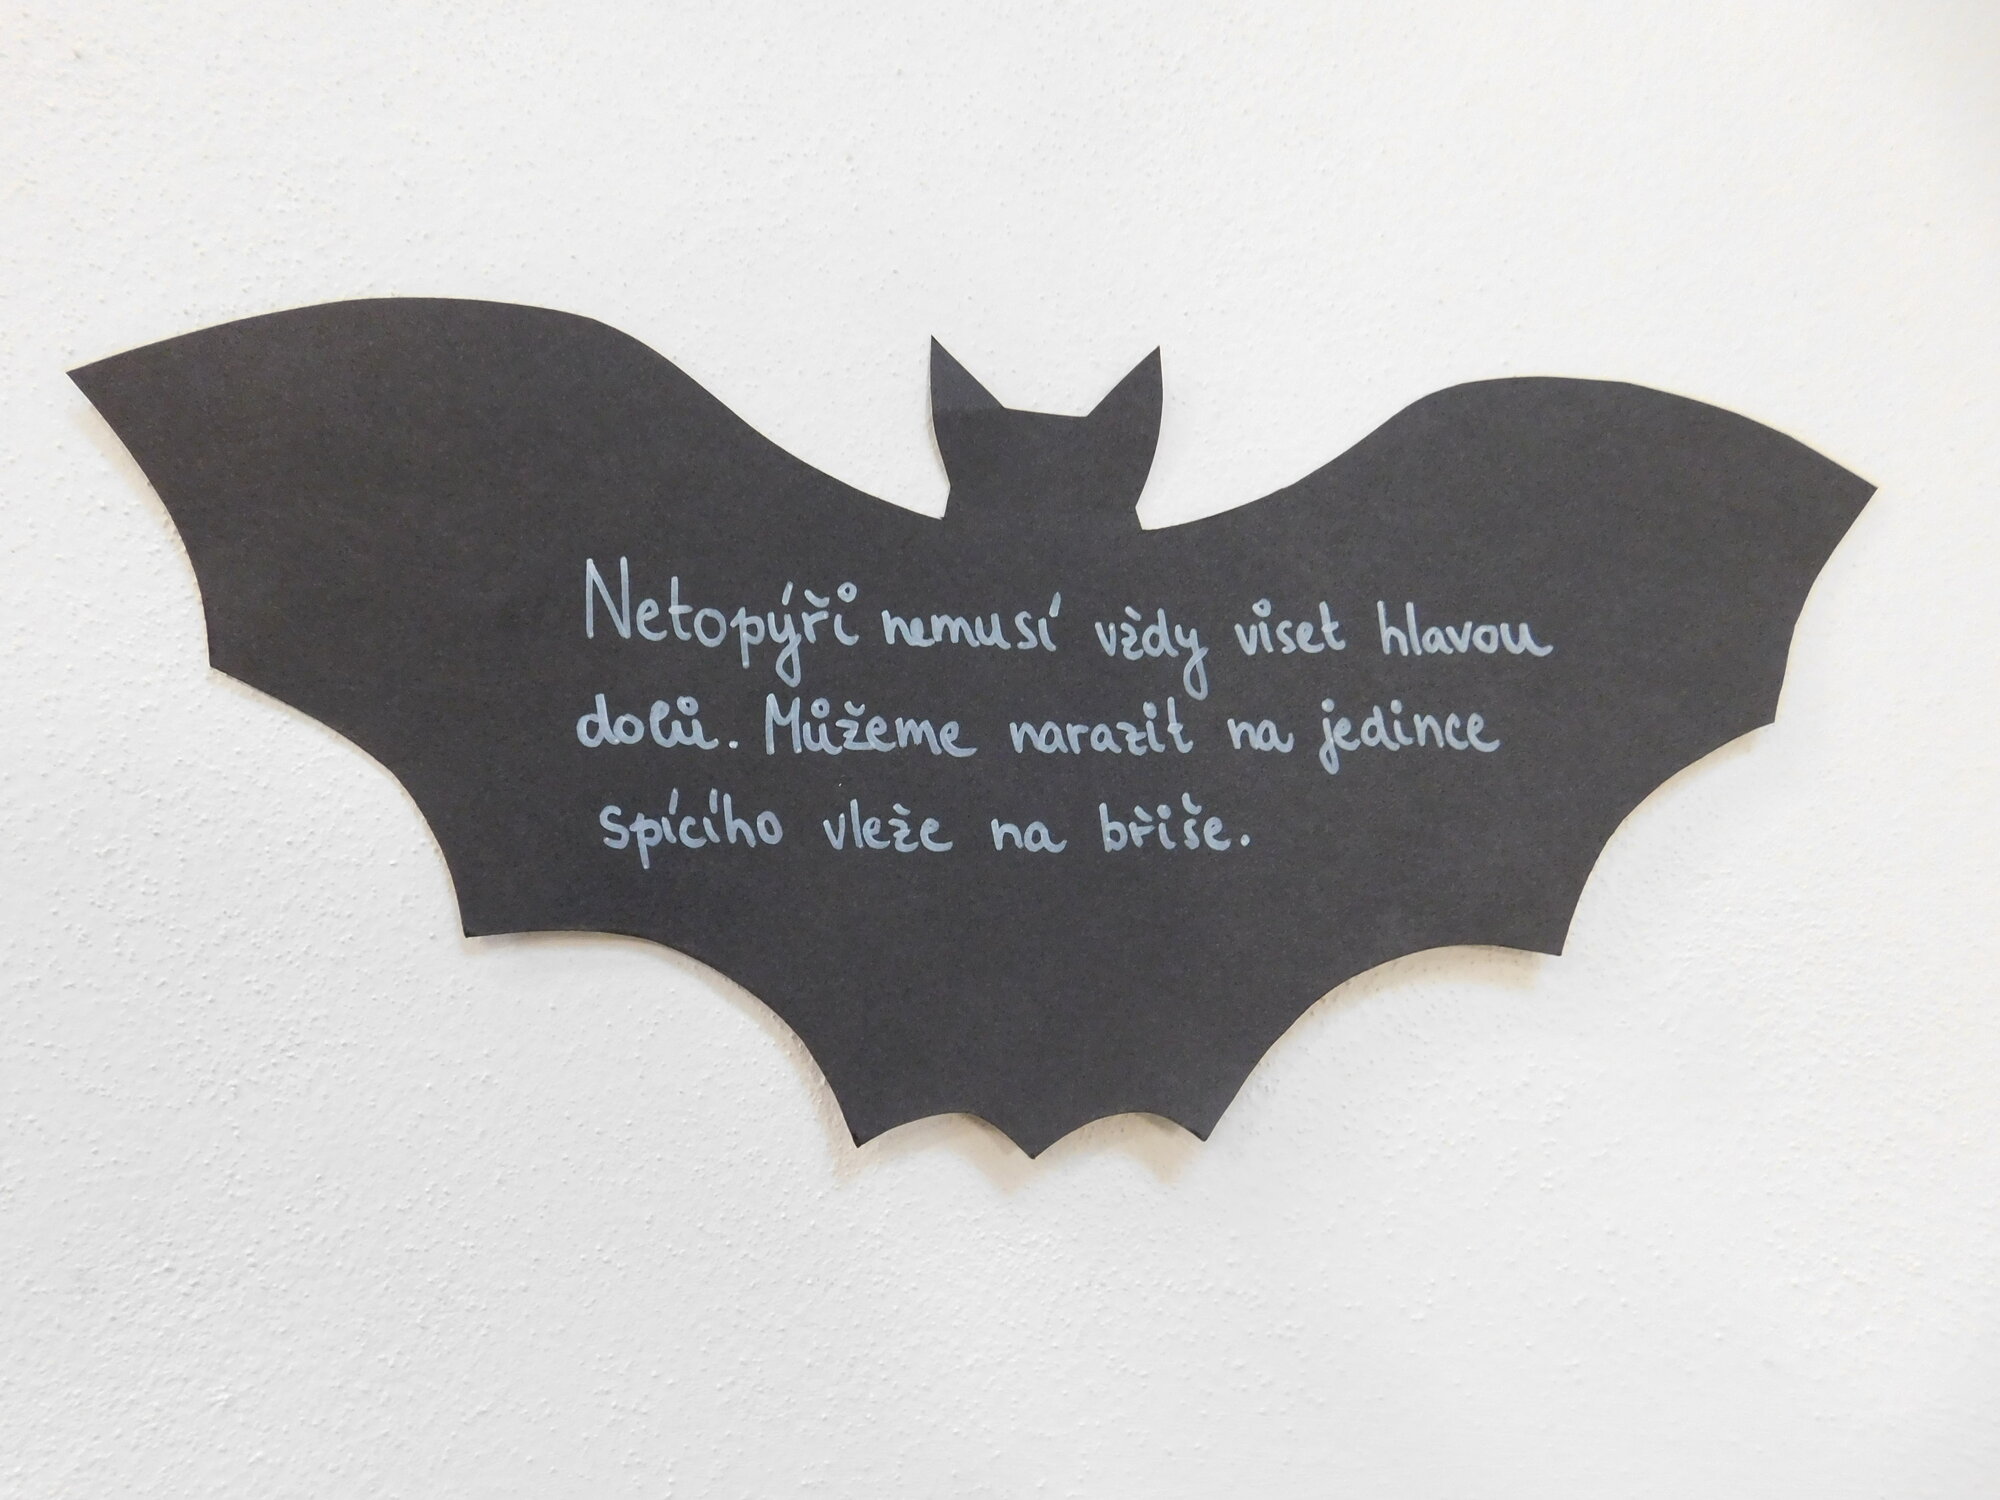 Netopýři nemusí vždy viset hlavou
dolů. Můžeme narazit na jedince
spícího vleže na břiše.